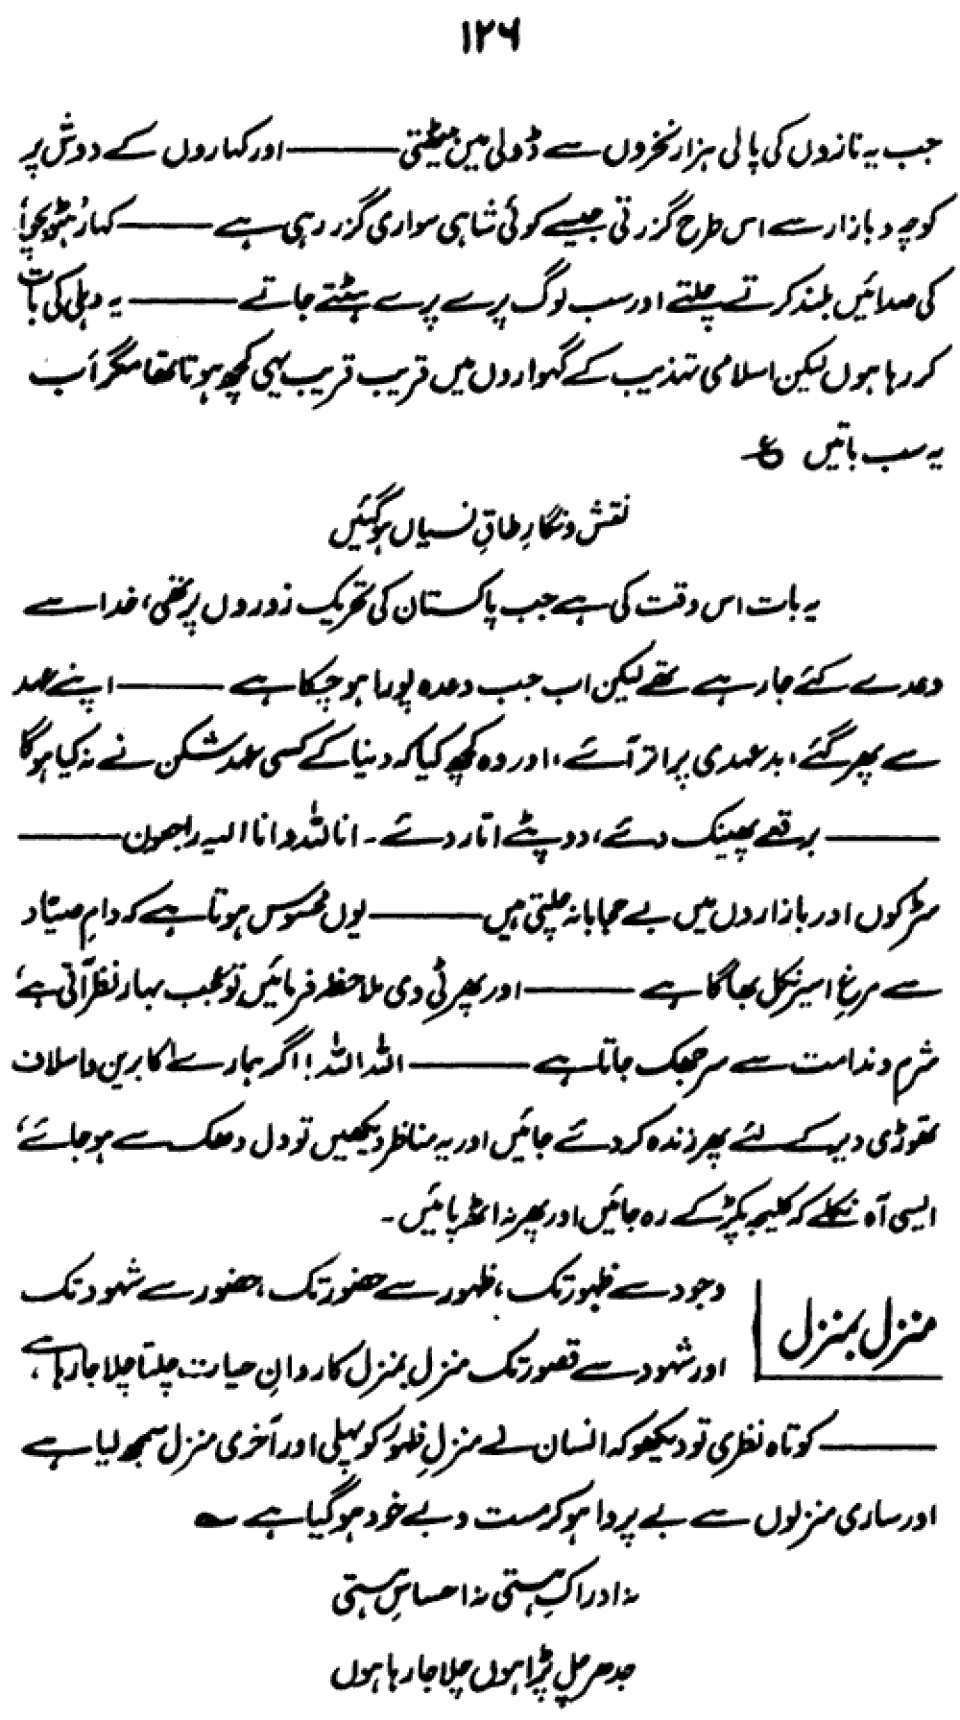 ۱۲۶
جب یہ نازوں کی پالی ہزار نخروں سے ڈولی میں بیٹھتی ——— اور کہاروں کے دوش پر
کوچہ و بازار سے اس طرح گزرتی جیسے کوئی شاہی سواری گزر رہی ہے ——— کہار "ہٹو بچو"
کی صدائیں بلند کرتے چلتے اور سب لوگ پرے پرے ہٹتے جاتے ——— یہ دہلی کی بات
کر رہا ہوں لیکن اسلامی تہذیب کے گہواروں میں قریب قریب یہی کچھ ہوتا تھا مگر اب
یہ سب باتیں ؏
نقش و نگارِ طاقِ نسیاں ہو گئیں
یہ بات اس وقت کی ہے جب پاکستان کی تحریک زوروں پر تھی، خدا سے
وعدے کئے جا رہے تھے لیکن اب جب وعدہ پورا ہو چکا ہے ——— اپنے عہد
سے پھر گئے، بدعہدی پر اتر آئے، اور وہ کچھ کیا کہ دنیا کے کسی عہد شکن نے نہ کیا ہوگا
——— برقعے پھینک دئے، دوپٹے اتار دئے۔ انا للہ وانا الیہ راجعون ———
سڑکوں اور بازاروں میں بے حجابانہ چلتی ہیں ——— یوں محسوس ہوتا ہے کہ دامِ صیّاد
سے مرغِ اسیر نکل بھاگا ہے ——— اور پھر ٹی وی ملاحظہ فرمائیں تو عجب بہار نظر آتی ہے،
شرم و ندامت سے سر جھک جاتا ہے ——— اللہ اللہ! اگر ہمارے اکابرین و اسلاف
تھوڑی دیر کے لئے پھر زندہ کر دئے جائیں اور یہ مناظر دیکھیں تو دل دھک سے ہو جائے،
ایسی آہ نکلے کہ کلیجہ پکڑ کے رہ جائیں اور پھر نہ اٹھ پائیں۔
منزل بمنزل
وجود سے ظہور تک، ظہور سے حضور تک، حضور سے شہود تک
اور شہود سے قصور تک منزل بمنزل کاروانِ حیات چلتا چلا جا رہا ہے،
——— کوتاہ نظری تو دیکھو کہ انسان نے منزلِ ظہور کو پہلی اور آخری منزل سمجھ لیا ہے
اور ساری منزلوں سے بے پروا ہو کر مست و بے خود ہو گیا ہے ؎
نہ ادراکِ ہستی نہ احساسِ ہستی
جدھر چل پڑا ہوں چلا جا رہا ہوں